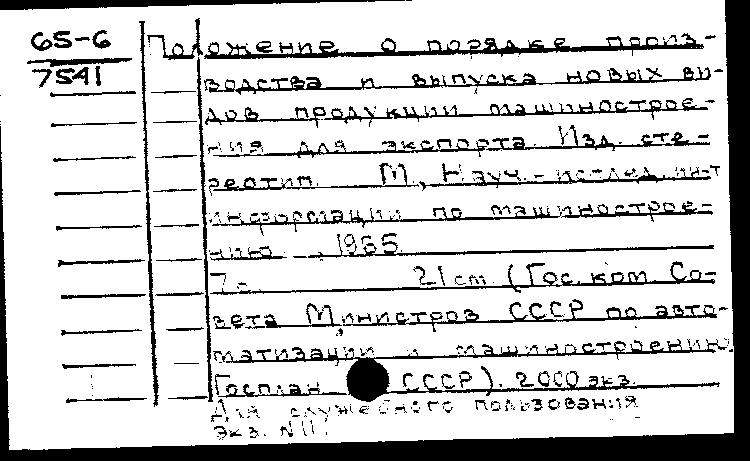 65-6
7541
Положение о порядке произ-
водства и выпуска новых ви-
дов продукции машинострое-
ния для экспорта. Изд. сте-
реотип. М., Науч.-исслед. ин-т
информации по машинострое-
нию, 1965.
7 с. 21 cm. (Гос. ком. Со-
вета Министров СССР по авто-
матизации и машиностроению.
Госплан СССР). 2000 экз.
Для служебного пользования
Экз. N 11.